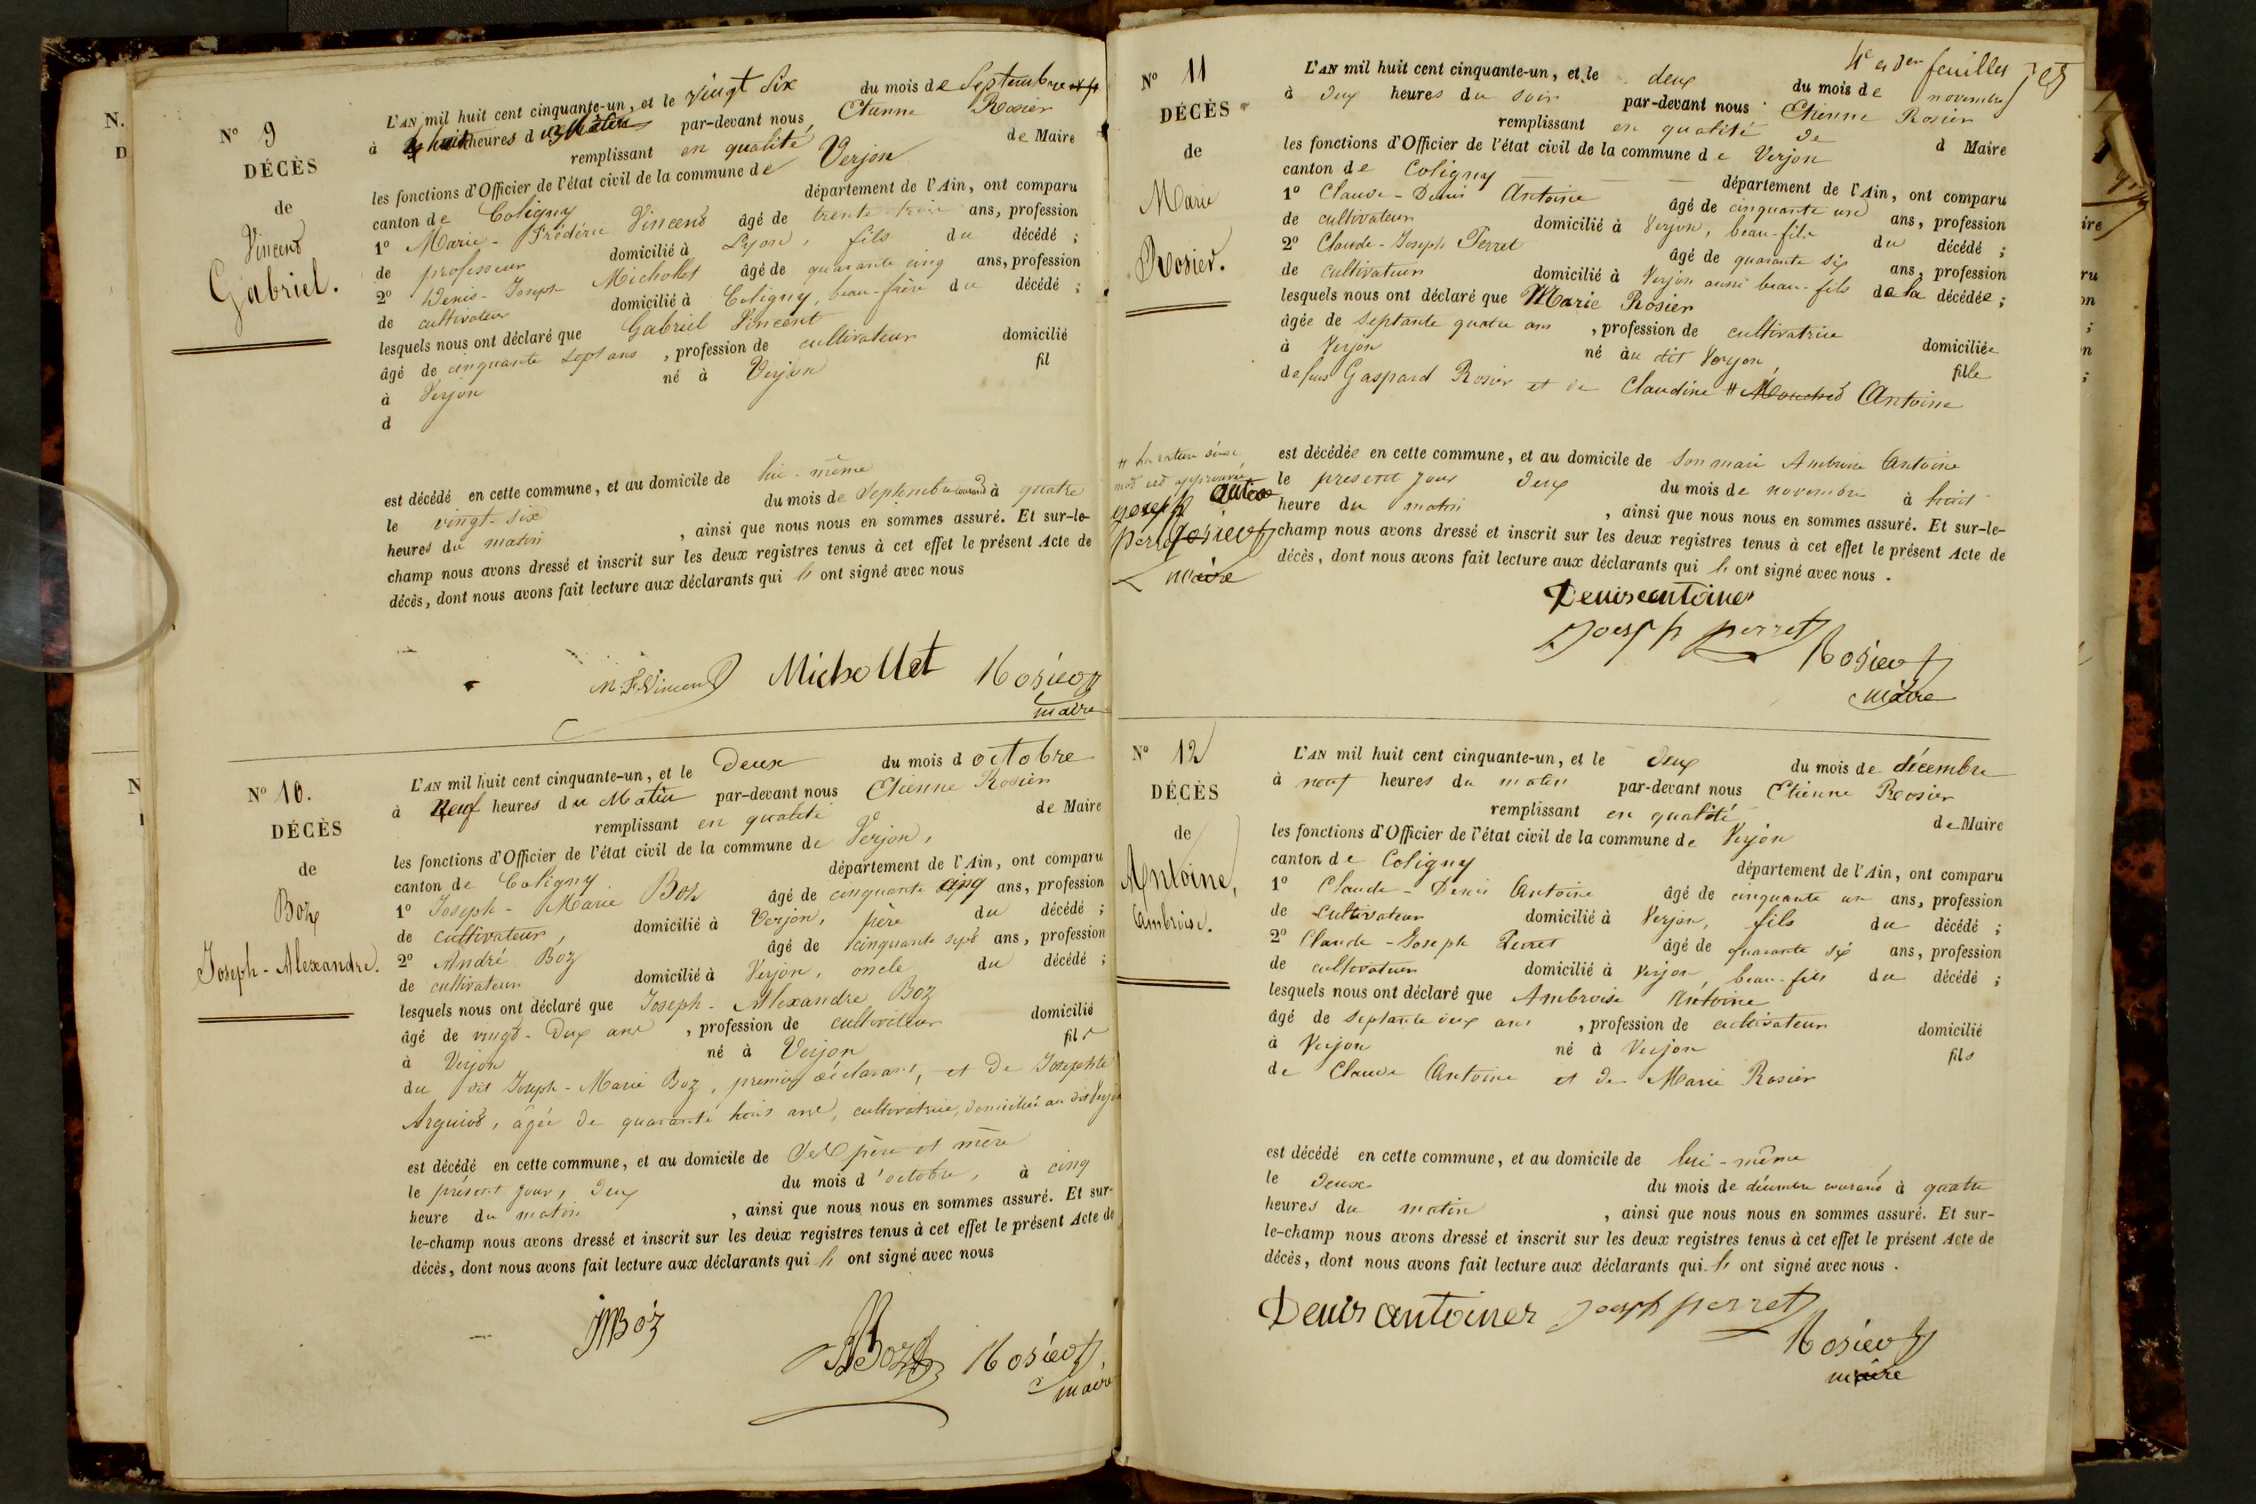 N° 9
DÉCÈS
de
Vincent
Gabriel.
L'AN mil huit cent cinquante-un, et le vingt six du mois de Septembre
à huit heures du Matin par-devant nous Etienne Rosier
remplissant en qualité de Maire
les fonctions d'Officier de l'état civil de la commune de Verjon
canton de Coligny département de l'Ain, ont comparu
1° Marie-Frédéric Vincent âgé de trente trois ans, profession
de professeur domicilié à Lyon, fils du décédé ;
2° Denis-Joseph Michollet âgé de quarante cinq ans, profession
de cultivateur domicilié à Coligny, beau-frère du décédé ;
lesquels nous ont déclaré que Gabriel Vincent
âgé de cinquante sept ans , profession de cultivateur domicilié
à Verjon né à Verjon fil
d
est décédé en cette commune, et au domicile de lui-même
le vingt-six du mois de Septembre courant à quatre
heures du matin , ainsi que nous nous en sommes assuré. Et sur-le-
champ nous avons dressé et inscrit sur les deux registres tenus à cet effet le présent Acte de
décès, dont nous avons fait lecture aux déclarants qui l' ont signé avec nous
M. F. Vincent Michollet Rosier
maire
N° 10.
DÉCÈS
de
Boz
Joseph-Alexandre.
L'AN mil huit cent cinquante-un, et le Deux du mois d octobre
à Neuf heures du Matin par-devant nous Etienne Rosier
remplissant en qualité de Maire
les fonctions d'Officier de l'état civil de la commune de Verjon,
canton de Coligny département de l'Ain, ont comparu
1° Joseph-Marie Boz âgé de cinquante cinq ans, profession
de cultivateur, domicilié à Verjon, père du décédé ;
2° André Boz âgé de cinquante sept ans, profession
de cultivateur domicilié à Verjon, oncle du décédé ;
lesquels nous ont déclaré que Joseph-Alexandre Boz
âgé de vingt-deux ans , profession de cultivateur domicilié
à Verjon né à Verjon fils
du dit Joseph-Marie Boz, premier déclarant, et de Josephte
âgée de quarante trois ans, cultivatrice, domiciliée au dit Verjon
est décédé en cette commune, et au domicile de Ses père et mère
le présent jour, deux du mois d'octobre, à cinq
heure du matin , ainsi que nous nous en sommes assuré. Et sur-
le-champ nous avons dressé et inscrit sur les deux registres tenus à cet effet le présent Acte de
décès, dont nous avons fait lecture aux déclarants qui l' ont signé avec nous
JMBoz
ABoz Rosier,
maire
4e et der feuillet
N° 11
DÉCÈS
de
Marie
Rosier.
L'AN mil huit cent cinquante-un, et le deux du mois de novembre
à deux heures du soir par-devant nous Etienne Rosier
remplissant en qualité de d Maire
les fonctions d'Officier de l'état civil de la commune de Verjon
canton de Coligny département de l'Ain, ont comparu
1° Claude-Denis Antoine âgé de cinquante un ans, profession
de cultivateur domicilié à Verjon, beau-fils du décédé ;
2° Claude-Joseph Perret âgé de quarante six ans, profession
de cultivateur domicilié à Verjon aussi beau-fils de la décédée ;
lesquels nous ont déclaré que Marie Rosier
âgée de Septante quatre ans , profession de cultivatrice domiciliée
à Verjon né au dit Verjon fille
de feus Gaspard Rosier et de Claudine # Antoine
est décédée en cette commune, et au domicile de son mari Ambroise Antoine
le présent jour deux du mois de novembre à huit
heure du matin , ainsi que nous nous en sommes assuré. Et sur-le-
champ nous avons dressé et inscrit sur les deux registres tenus à cet effet le présent Acte de
décès, dont nous avons fait lecture aux déclarants qui l' ont signé avec nous .
# la rature d'un
mot est approuvée
joseph
Rosier
maire
Denis antoine
Joseph perret
Rosier
maire
N° 12
DÉCÈS
de
Antoine,
Ambroise.
L'AN mil huit cent cinquante-un, et le deux du mois de décembre
à neuf heures du matin par-devant nous Etienne Rosier
remplissant en qualité de Maire
les fonctions d'Officier de l'état civil de la commune de Verjon
canton de Coligny département de l'Ain, ont comparu
1° Claude-Denis Antoine âgé de cinquante un ans, profession
de cultivateur domicilié à Verjon, fils du décédé ;
2° Claude-Joseph Perret âgé de quarante six ans, profession
de cultivateur domicilié à Verjon, beau-fils du décédé ;
lesquels nous ont déclaré que Ambroise Antoine
âgé de septante deux ans , profession de cultivateur domicilié
à Verjon né à Verjon fils
de Claude Antoine et de Marie Rosier
est décédé en cette commune, et au domicile de lui-même
le deux du mois de décembre courant à quatre
heures du matin , ainsi que nous nous en sommes assuré. Et sur-
le-champ nous avons dressé et inscrit sur les deux registres tenus à cet effet le présent Acte de
décès, dont nous avons fait lecture aux déclarants qui l' ont signé avec nous .
Denis antoine Joseph perret
Rosier
maire